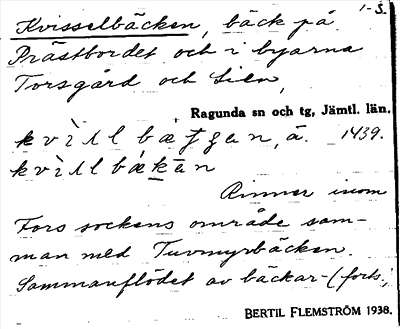 1-S.
Kvisselbäcken, bäck på
Prästbordet och i byarna
Torsgård och Lien,
Ragunda sn och tg, Jämtl. län.
1439.
Rinner inom
Fors sockens område sam-
man med Tuvmyrbäcken.
Sammanflödet av bäckar- (forts.,
BERTIL FLEMSTRÖM 1938.